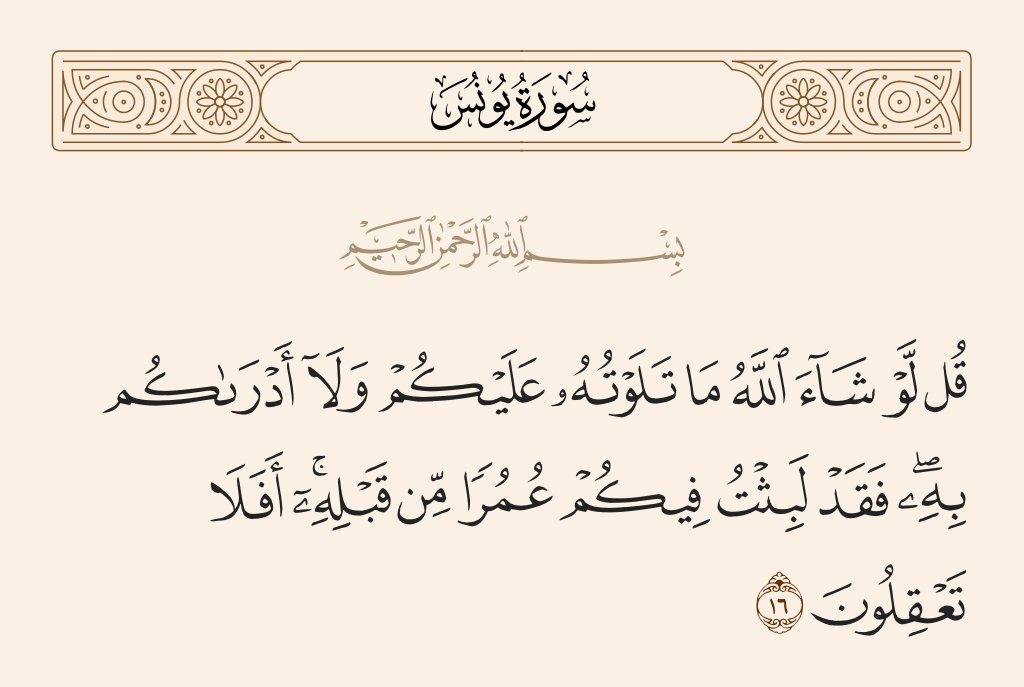 سُورَةُ يُونُسَ
بِسْمِ ٱللَّهِ ٱلرَّحْمَٰنِ ٱلرَّحِيمِ
قُل لَّوْ شَآءَ ٱللَّهُ مَا تَلَوْتُهُۥ عَلَيْكُمْ وَلَآ أَدْرَىٰكُم
بِهِۦ ۖ فَقَدْ لَبِثْتُ فِيكُمْ عُمُرًا مِّن قَبْلِهِۦٓ ۚ أَفَلَا
تَعْقِلُونَ ١٦